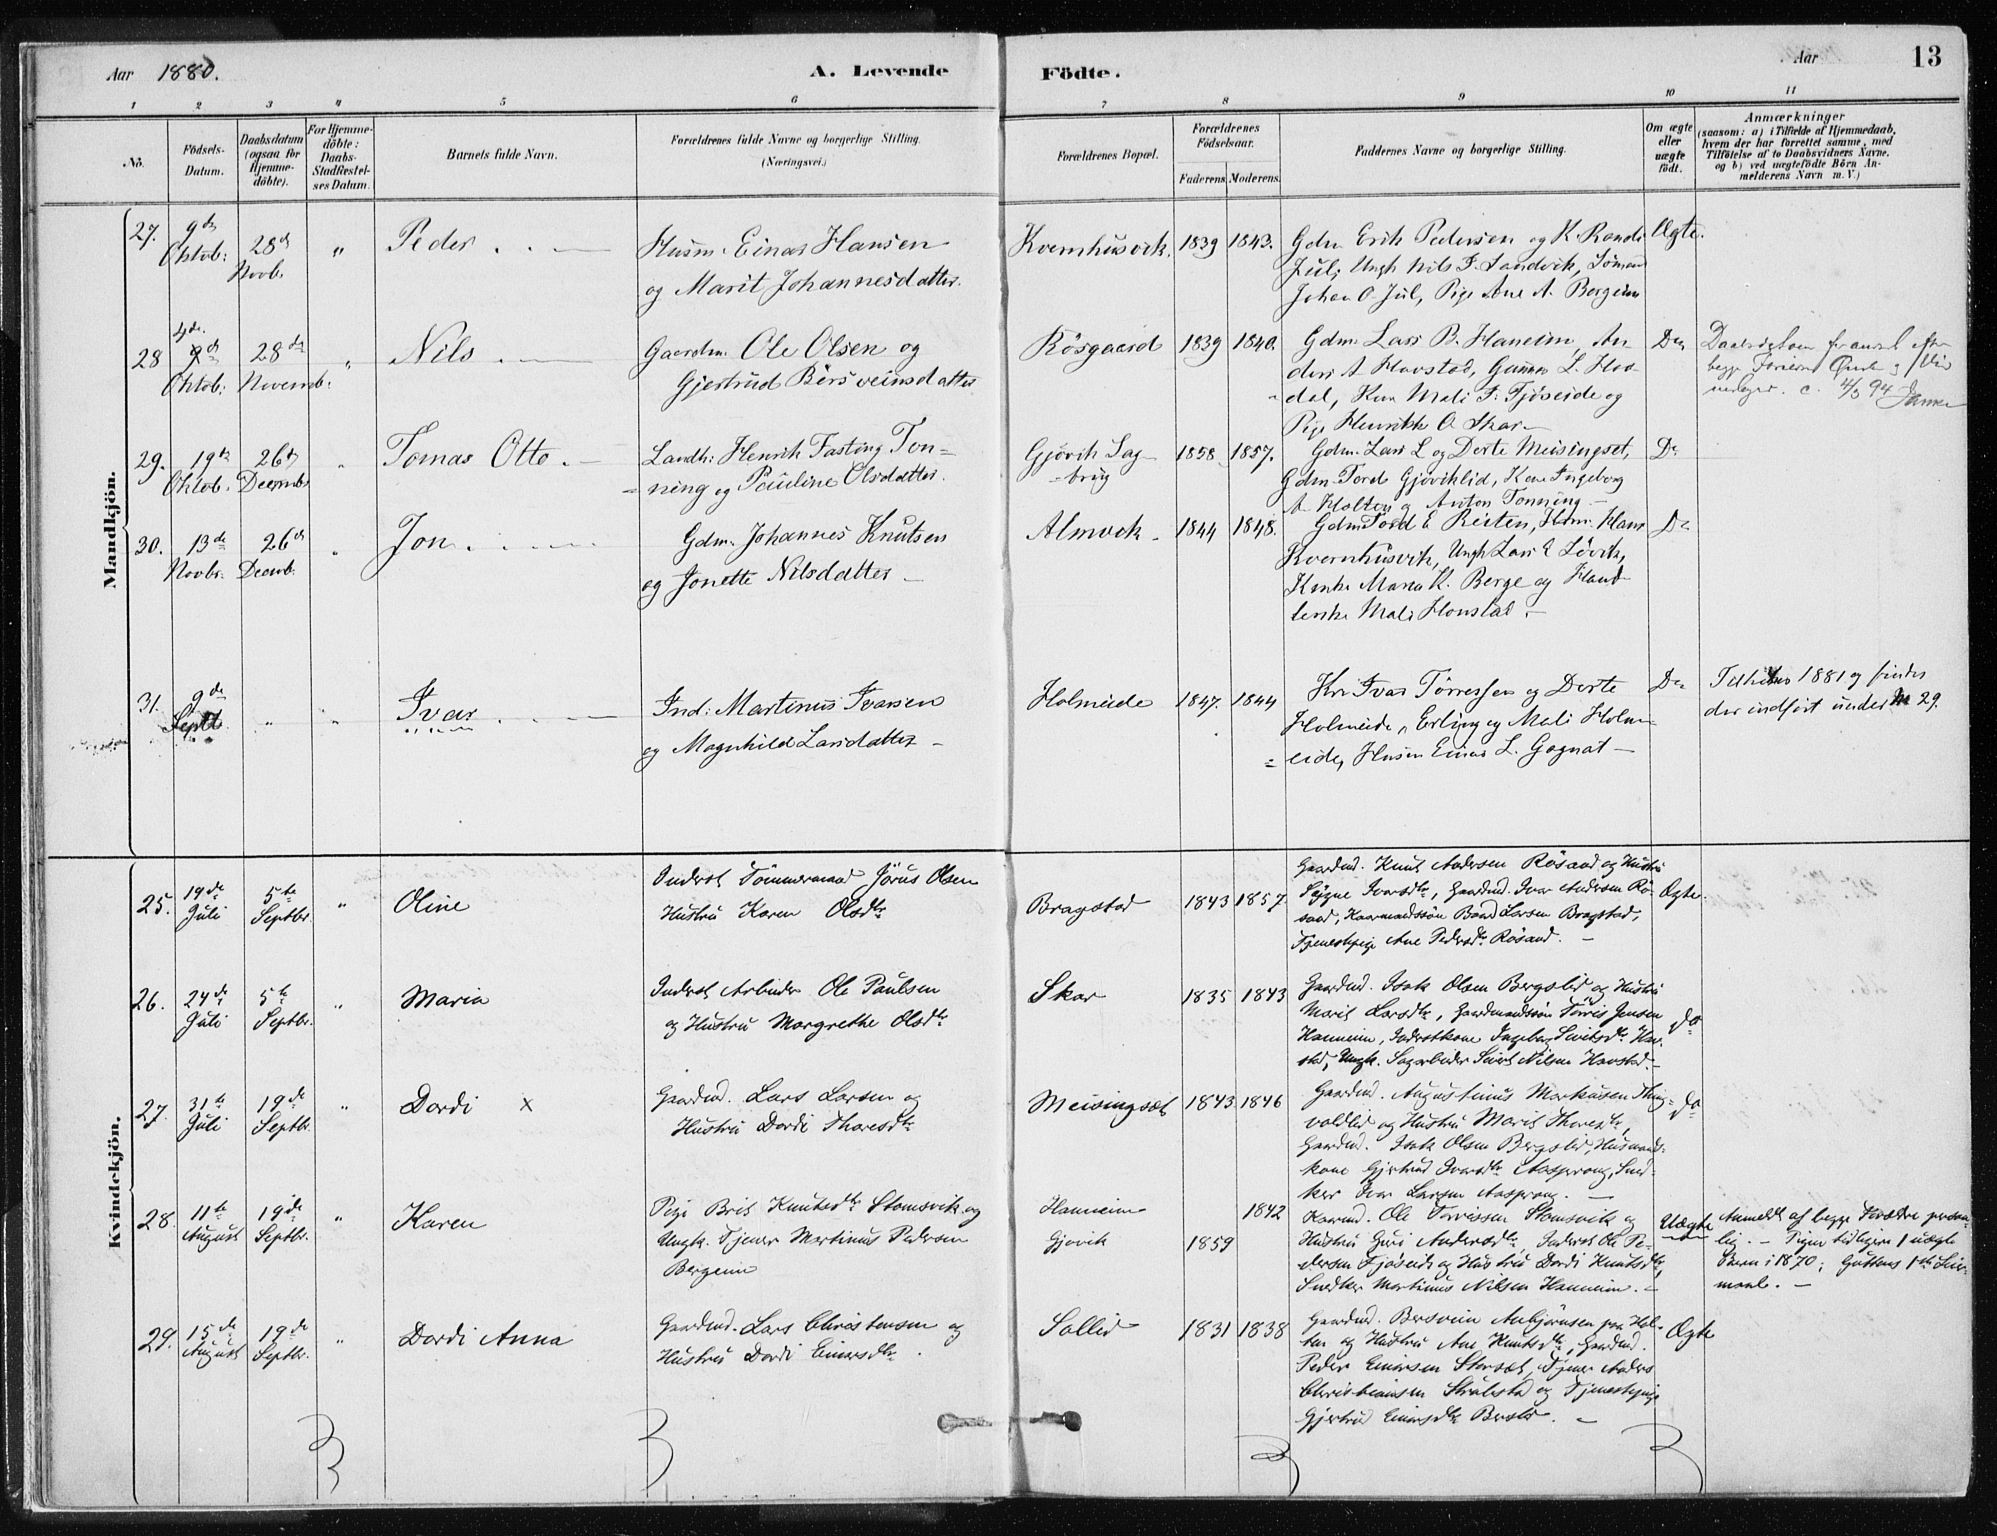 Aar 1880.
A. Levende
Födte.
Aar
13
1 2 3 4 5 6 7 8 9 10 11
No.
Födsels-Datum.
Daabsdatum (ogsaa for Hjemme-döbte).
For Hjemme-döbte: Daabs-Stadfæstel-ses Datum.
Barnets fulde Navn.
Forældrenes fulde Navne og borgerlige Stilling.
(Næringsvei.)
Forældrenes Bopæl.
Forældrenes Födselsaar.
Faderens. Moderens.
Faddernes Navne og borgerlige Stilling.
Om ægte eller uægte födt.
Anmærkninger
(saasom: a) i Tilfælde af Hjemmedaab,
hvem der har forrettet samme, med
Tilföielse af to Daabsvidners Navne,
og b) ved uægtefödte Börn An-
melderens Navn m. V.)
Mandkjön.
27. 9de Oktob: 28de Novb. " Peder
Husm. Einar Hansen
og Marit Johannesdatter.
Kvernhusvik. 1839 1843.
Gdm. Erik Pedersen og K. Randi
Jul, Ungk Nils F. Sandvik, Sömand
Johan O. Jul, Pige Ane A. Bergeim
Ægte.
28 4de Oktob: 28de Novemb: " Nils
Gaardm. Ole Olsen og
Gjertrud Börsveinsdatter
Rösgaard 1839 1840.
Gdm. Lars B. Haneim, An
ders A Havstad, Gunnar L. Hov
dal, Kone Mali F. Fjöseide og
Pige Henrikke O Skar
Do
4/3 94
29. 19de Oktob. 26de Decmb. " Tomas Otto.
Landh: Henrik Fasting Ton=
=ning og Pauline Olsdatter.
Gjövik Sag
-brug 1858 1857.
Gdm. Lars L og Dorte Meisingset,
Gdm. Tord Gjöviklid, Kone Ingeborg
A Holten og Anton Tonning
Do
30. 13de Novbr. 26de Decmb. " Jon.
Gdm. Johannes Knutsen
og Jonette Nilsdatter
Almvik. 1844 1848.
Gdm Tord E Reiten, Husm. Hans
Kvernhusvik, Ungk Lars E Lövik,
Enke Maria K. Berge og Hand
lerske Mali Honstad.
Do
31. 9de Septb. " " Ivar
Ind: Martinus Ivarsen
og Magnhild Larsdatter
Holmeide 1847. 1844
Ivar Törressen og Dorte
Holmeide, Erling og Mali Holm
=eide, Husm Einar L. Gagnat
Do
1881 og findes
der indfört under No 29.
Kvindekjön.
25. 19de Juli 5te Septbr. " Oline
Inderst Tömmermand Jörus Olsen
Hustru Karen Olsdtr
Bragstad 1843 1857
Gaardmd. Knut Andersen Rösand og Hustru
Sygne Ivarsdtr, Gaardmd. Ivar Andersen Rö-
sand, Kaarmandssön Baard Larsen Bragstad,
Tjenestepige Ane Pedersdtr Rösand.
Ægte.
26. 24de Juli 5te Septbr. " Maria
Inderst Arbeider Ole Paulsen
og Hustru Margrethe Olsdtr
Skar 1835 1843
Gaardmd. Isak Olsen Bergslid og Hustru
Marit Larsdtr, Gaardmandssön Törris Jensen
Hanneim, Inderstkone Ingeborg Sivertsdtr Hav-
stad, Ungk. Sagarbeider Sivert Nilsen Havstad.
do
27. 31te Juli 19de Septbr. " Dordi x
Gaardmd. Lars Larsen og
Hustru Dordi Thoresdtr
Meisingsæt 1843 1846
Gaardmd. Augustinus Markusen Thing=
voldlid og Hustru Marit Thoresdtr,
Gaardmd. Isak Olsen Bergslid, Husmands-
kone Gjertrud Ivarsdtr Aasprong, Sned-
ker Ivar Larsen Aasprong.
do
28. 11te August 19de Septbr. " Karen
Pige Brit Knutsdtr Stomsvik og
Ungk. Tjener Martinus Pedersen
Bergeim
Hanneim 1842
Gjövik 1859
Kaarmd. Ole Torrissen Stomsvik og
Hustru Guri Andersdtr, Inderst Ole Pe-
dersen Fjöseide og Hustru Dordi Knutsdtr,
Snedker Martinus Nilsen Hanneim.
Uægte
Anmeldt af begge Forældre person
lig. — Pigen tidligere 1 uægte
Barn i 1870; Guttens 1ste Leier-
maal. —
29. 15de August 19de Septbr. " Dordi Anna
Gaardmd. Lars Christensen og
Hustru Dordi Einarsdtr.
Sollid 1831 1838
Gaardmd. Bersvein Anbjörnsen paa Hol-
ten og Hustru Ane Knutsdtr, Gaardmd.
Peder Einarsen Storsæt, Tjener Anders
Christiansen og Tjenestepige
Gjertrud Einarsdtr
Ægte